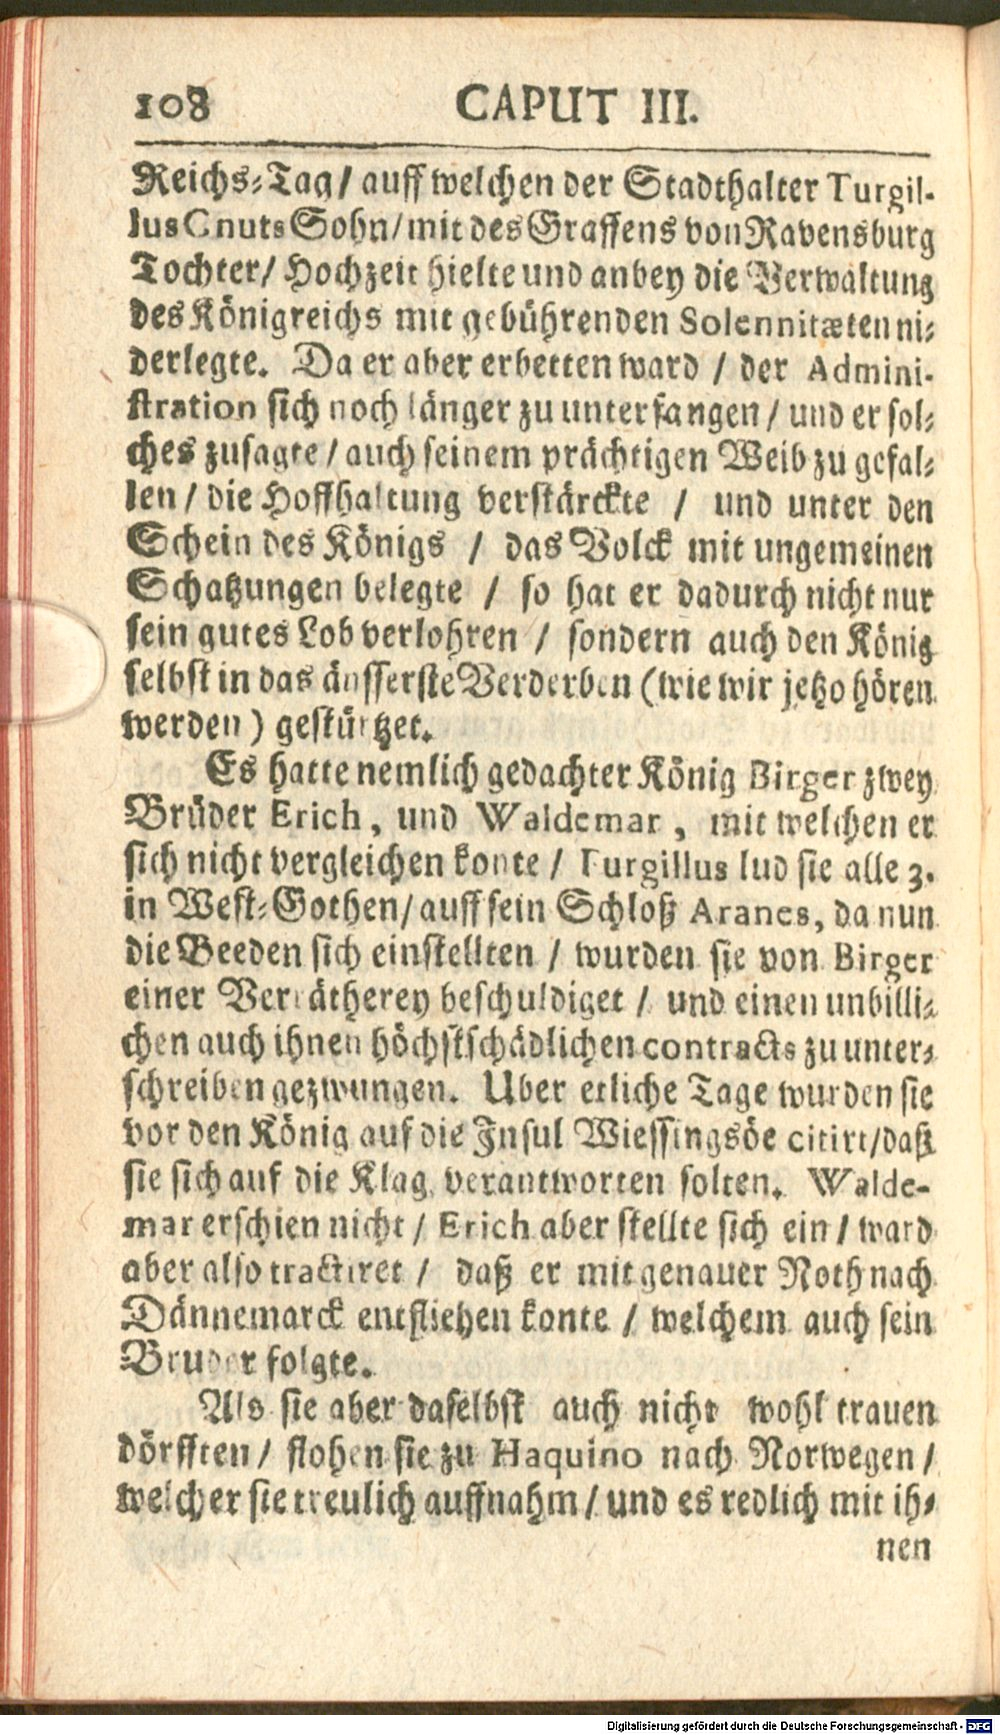 108 CAPUT III.
Reichs-Tag / auff welchen der Stadthalter Turgil-
lus Cnuts Sohn / mit des Graffens von Ravensburg
Tochter / Hochzeit hielte und anbey die Verwaltung
des Königreichs mit gebührenden Solennitæten ni-
derlegte. Da er aber erbetten ward / der Admini-
stration sich noch länger zu unterfangen / und er sol-
ches zusagte / auch seinem prächtigen Weib zu gefal-
len / die Hoffhaltung verstärckte / und unter den
Schein des Königs / das Volck mit ungemeinen
Schatzungen belegte / so hat er dadurch nicht nur
sein gutes Lob verlohren / sondern auch den König
selbst in das äusserste Verderben (wie wir jetzo hören
werden) gestürtzet.
Es hatte nemlich gedachter König Birger zwey
Brüder Erich, und Waldemar, mit welchen er
sich nicht vergleichen konte / Turgillus lud sie alle 3.
in West-Gothen / auff sein Schloß Aranes, da nun
die Beeden sich einstellten / wurden sie von Birger
einer Verrätherey beschuldiget / und einen unbilli-
chen auch ihnen höchstschädlichen contracts zu unter-
schreiben gezwungen. Uber etliche Tage wurden sie
vor den König auf die Insul Wiessingsöe citirt / daß
sie sich auf die Klag verantworten solten. Walde-
mar erschien nicht / Erich aber stellte sich ein / ward
aber also tractiret / daß er mit genauer Noth nach
Dännemarck entfliehen konte / welchem auch sein
Bruder folgte.
Als sie aber daselbst auch nicht wohl trauen
dörfften / flohen sie zu Haquino nach Norwegen /
welcher sie treulich auffnahm / und es redlich mit ih-
nen
Digitalisierung gefördert durch die Deutsche Forschungsgemeinschaft - DFG